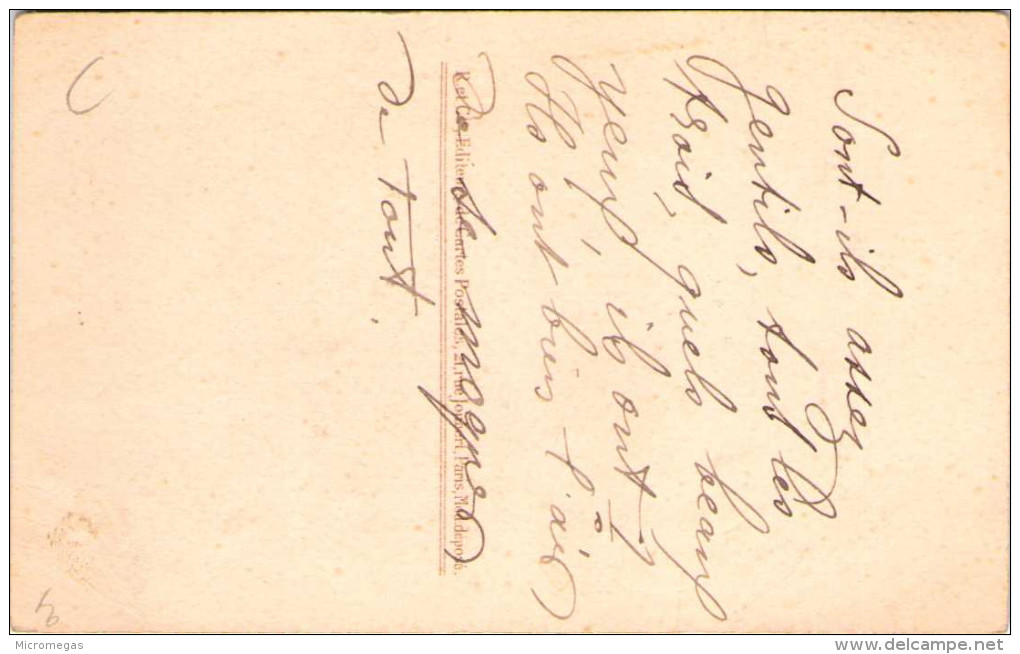 Sont-ils assez
gentils, tout les
trois, quels beaux
yeux, ils ont !
Ils ont bien l'air
de se moquer
de tout.
Editeur de Cartes Postales, 21, rue Joubert, Paris, Mod. déposé.
Micromegas
delcampe.net